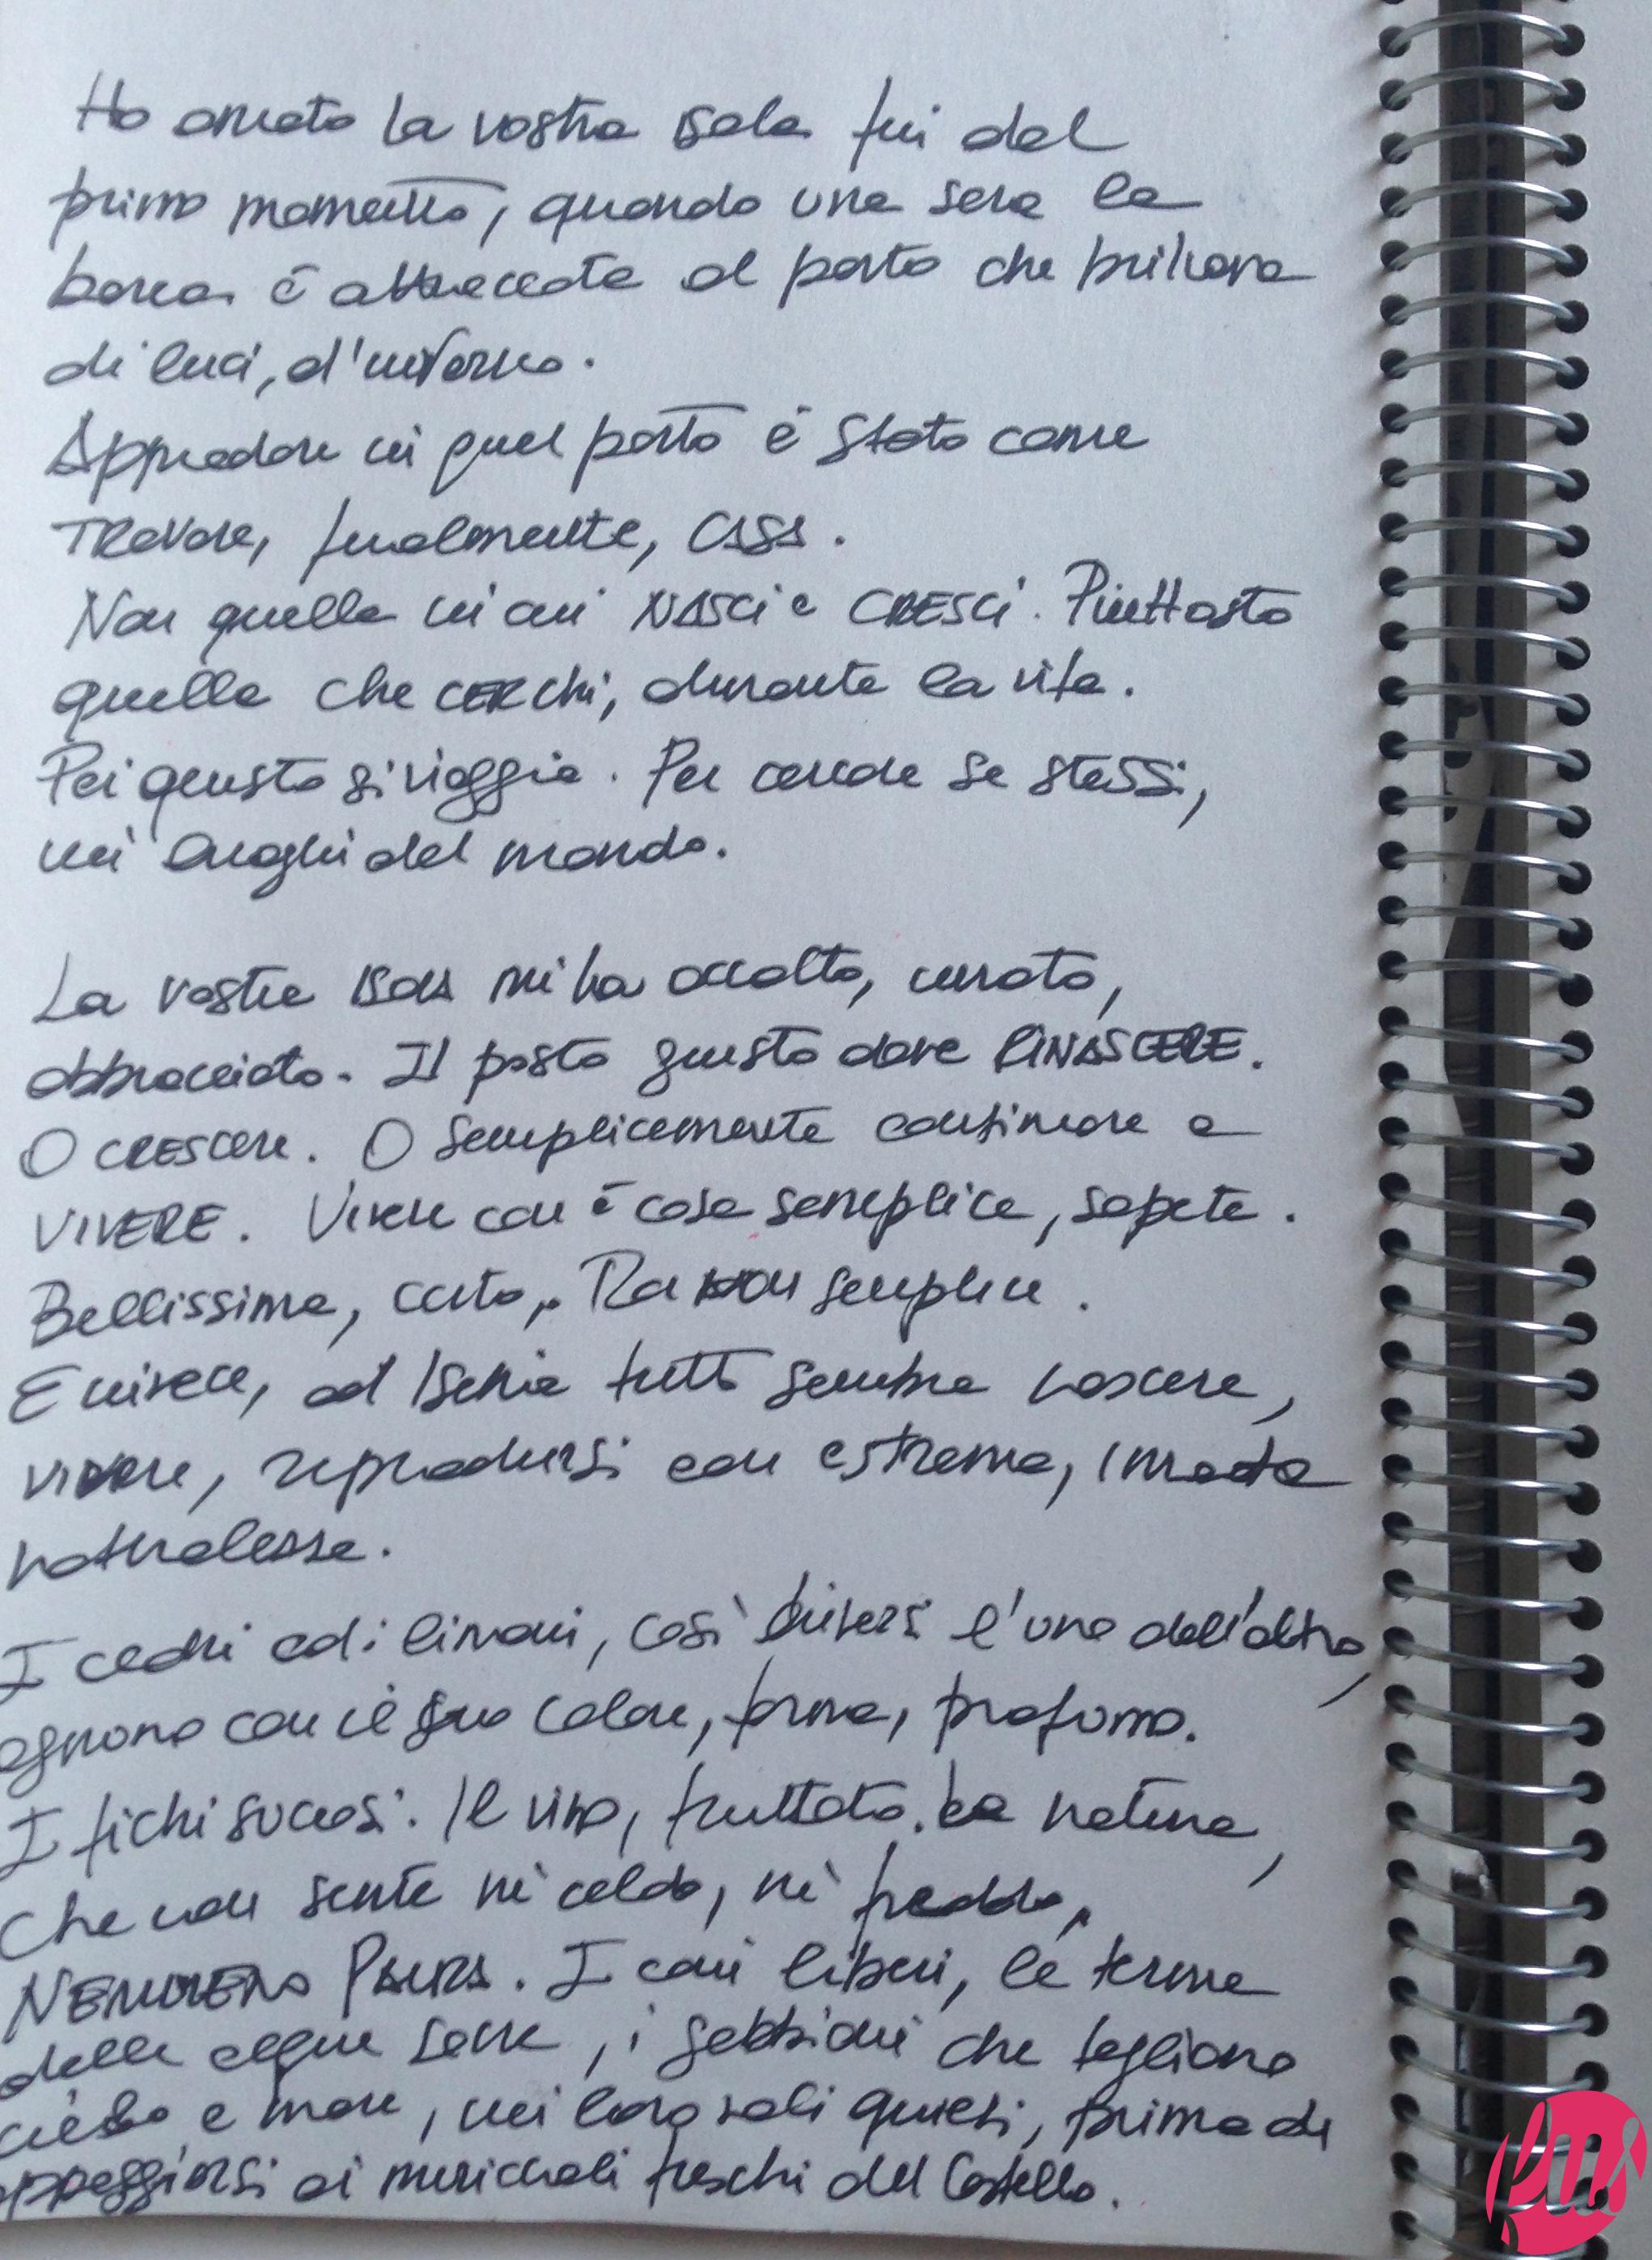 Ho amato la vostra isola fin dal
primo momento, quando una sera la
barca è attraccata al porto che brillava
di luci, d'inverno.
Approdare in quel porto è stato come
TROVARE, finalmente, CASA.
Non quella in cui NASCI e CRESCI. Piuttosto
quella che CERChi, durante la vita.
Per questo si viaggia. Per cercare se stessi,
nei luoghi del mondo.
La vostra ISOLA mi ha accolto, curato,
abbracciato. Il posto giusto dove RINASCERE.
O CRESCERE. O semplicemente continuare a
VIVERE. Vivere non è cosa semplice, sapete.
Bellissima, certo. Ma non semplice.
E invece, ad Ischia tutto sembra nascere,
vivere, riprodursi con estrema, innata
naturalezza.
I cedri ed i limoni, così diversi l'uno dall'altro,
ognuno con il suo colore, forma, profumo.
I fichi succosi. Il vino, fruttato. La natura,
che non sente nè caldo, nè freddo,
NEMMENO PAURA. I cani liberi, le terme
dalle acque sacre, i gabbiani che tagliano
cielo e mare, nei loro voli quieti, prima di
appoggiarsi ai muriccioli freschi del Castello.
PMS